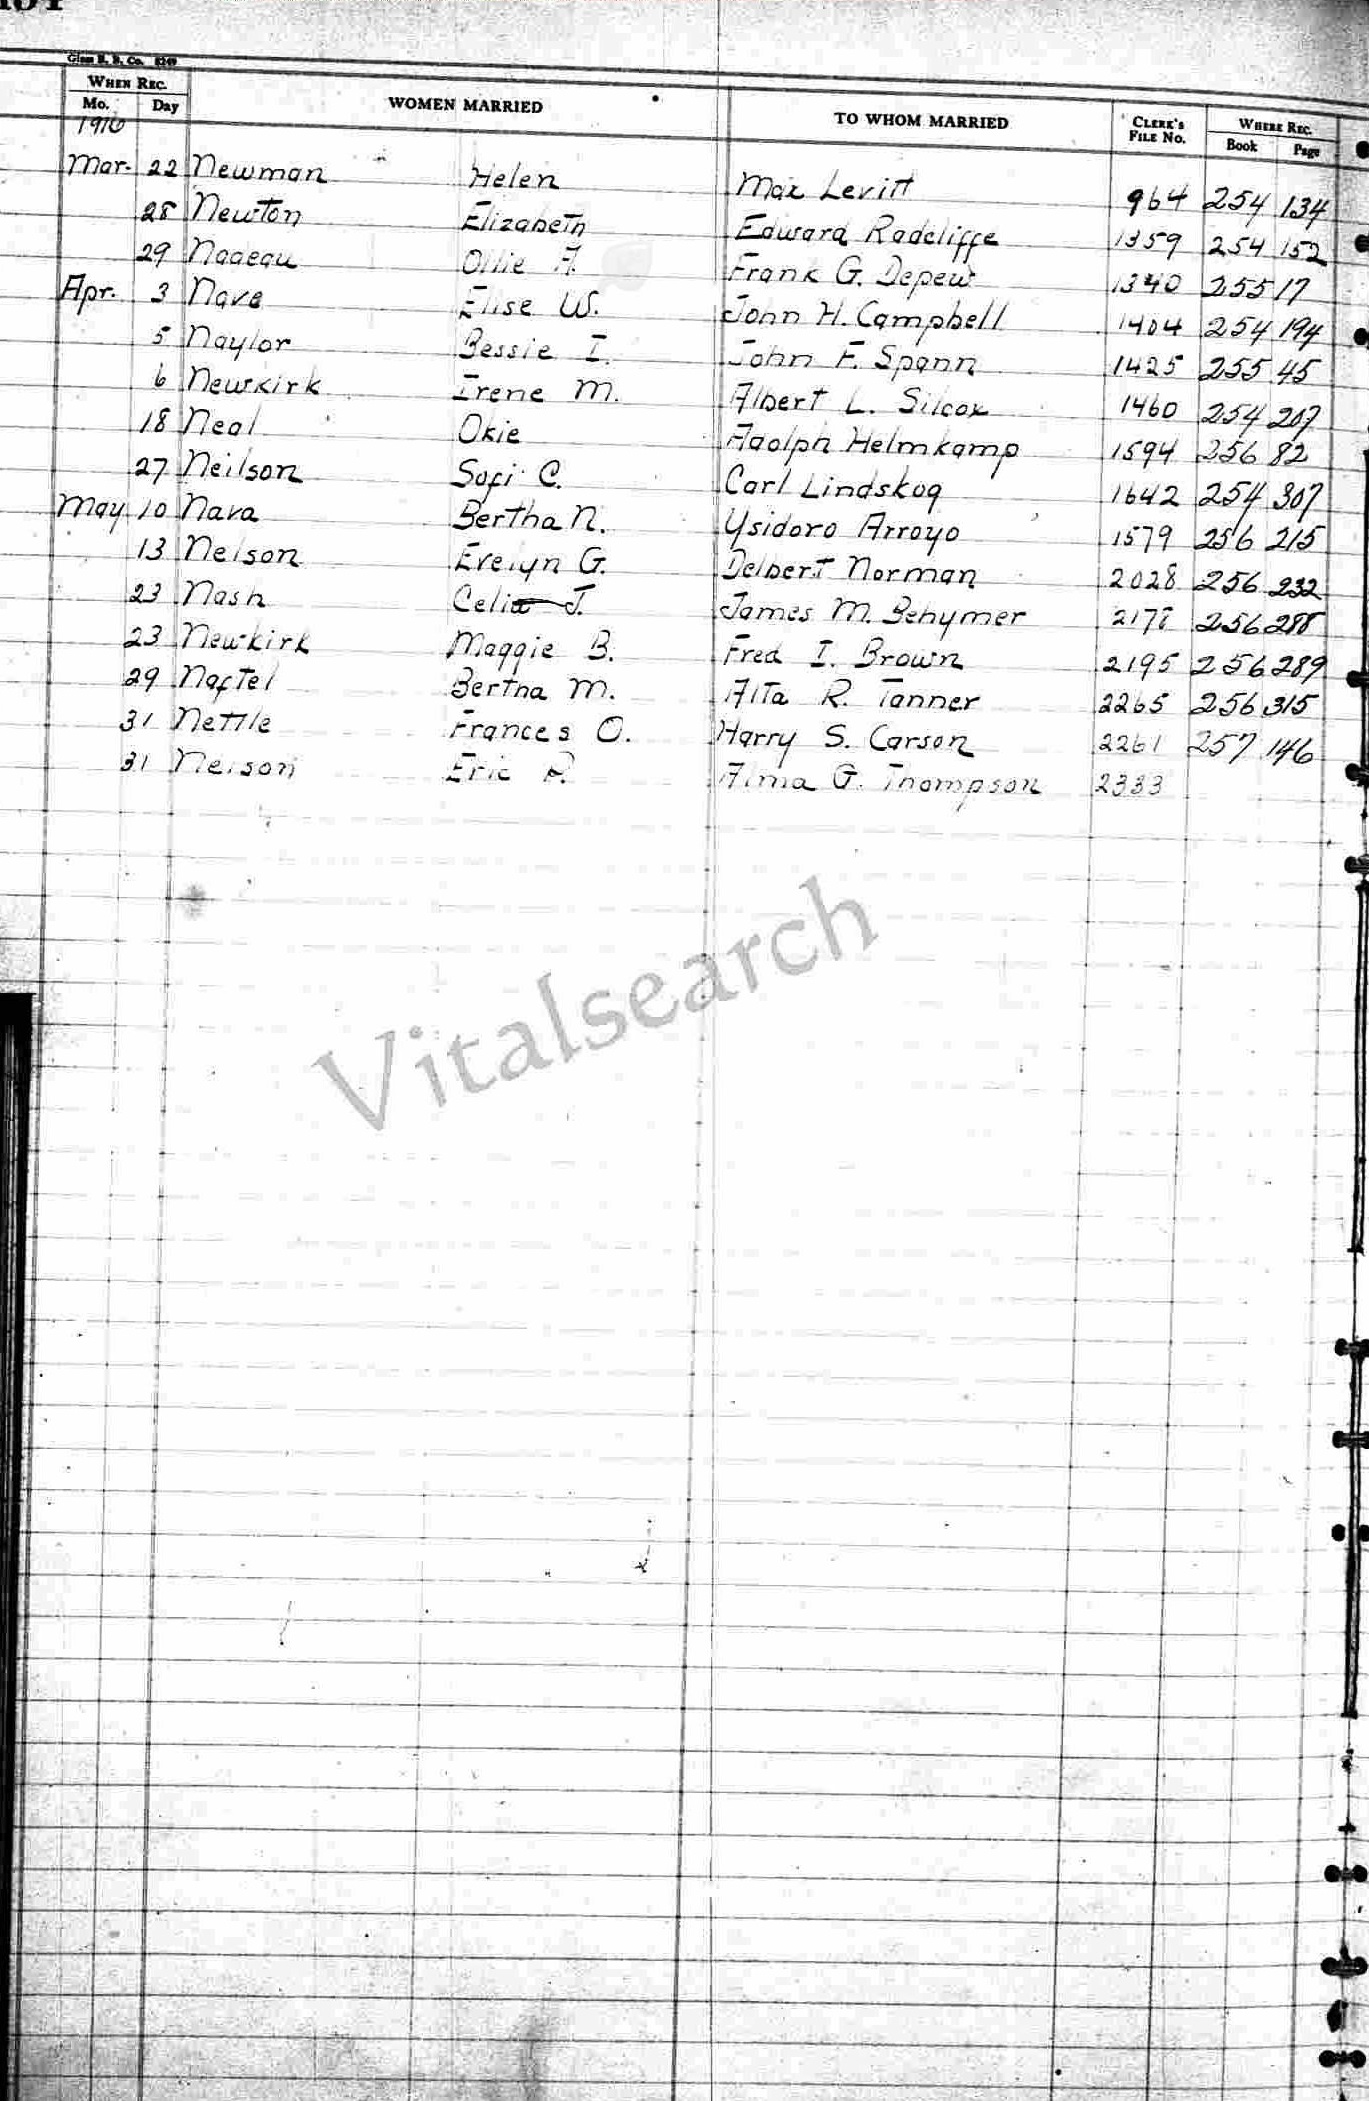 Glass B. B. Co. 8249
WHEN REC. WOMEN MARRIED TO WHOM MARRIED CLERK'S FILE No. WHERE REC.
Mo. Day Book Page
1916
Mar. 22 Newman Helen Max Levitt 964 254 134
28 Newton Elizabeth Edward Radcliffe 1359 254 152
29 Nadeau Ollie A. Frank G. Depew 1340 255 17
Apr. 3 Nave Elise W. John H. Campbell 1404 254 194
5 Naylor Bessie I. John F. Spann 1425 255 45
6 Newkirk Irene M. Albert L. Silcox 1460 254 207
18 Neal Okie Adolph Helmkamp 1594 256 82
27 Neilson Sofi C. Carl Lindskog 1642 254 307
May 10 Nava Bertha N. Ysidoro Arroyo 1579 256 215
13 Nelson Evelyn G. Delbert Norman 2028 256 232
23 Nash Celia J. James M. Behymer 2178 256 288
23 Newkirk Maggie B. Fred I. Brown 2195 256 289
29 Naftel Bertha M. Alta R. Tanner 2265 256 315
31 Nettle Frances O. Harry S. Carson 2261 257 146
31 Nelson Eric R. Alma G. Thompson 2333
Vitalsearch